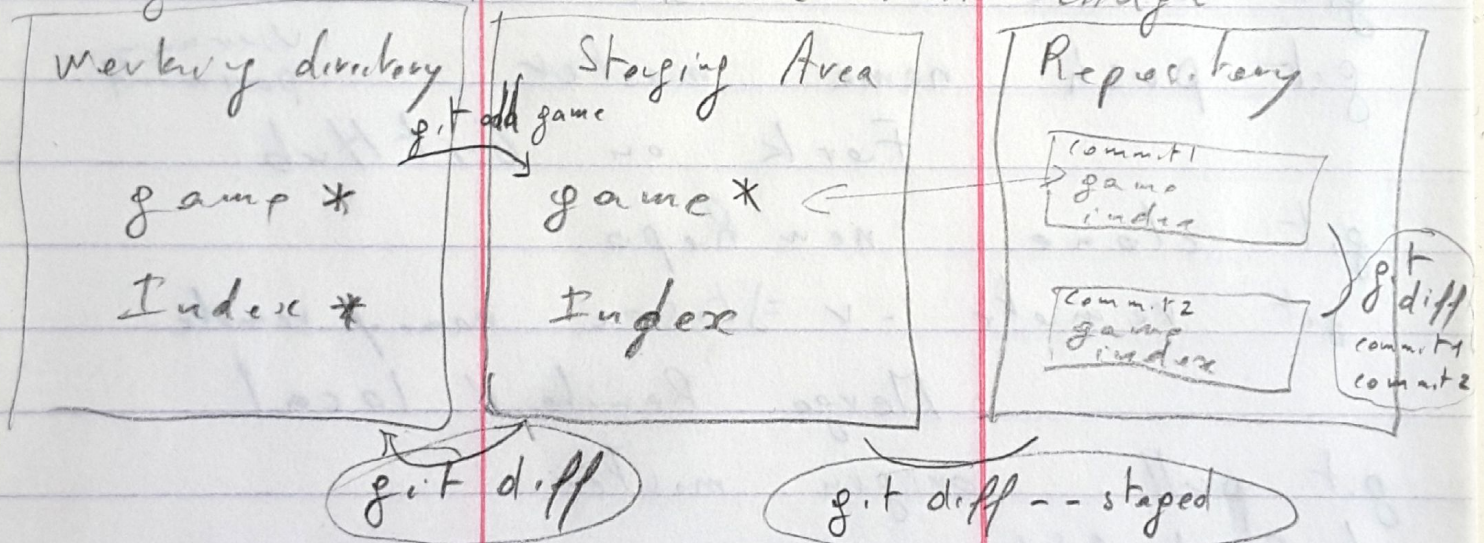 Working directory
git add game
game *
Index *
Staging Area
game *
Index
Repository
commit1
game
index
commit2
game
index
git
diff
commit1
commit2
git diff
git diff -- staged